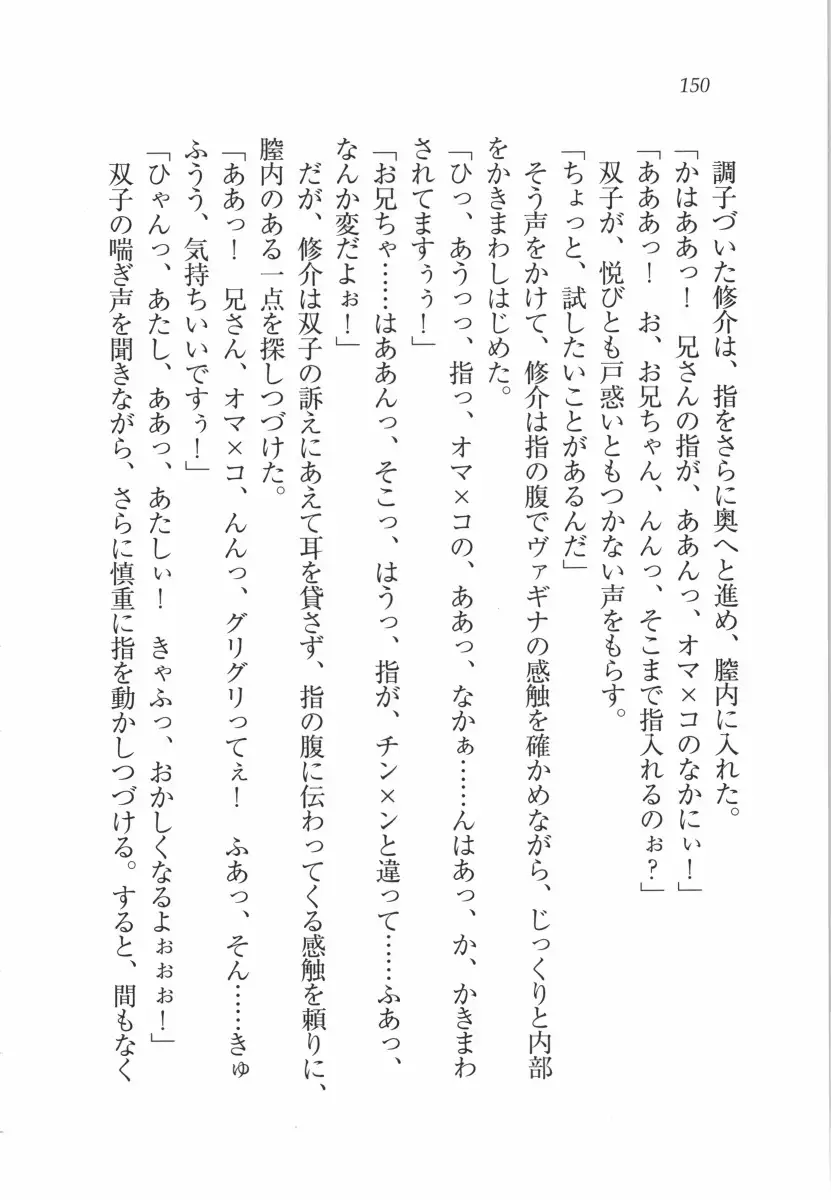 150
調子づいた修介は、指をさらに奥へと進め、膣内に入れた。
「かはああっ！　兄さんの指が、ああんっ、オマ×コのなかにぃ！」
「あああっ！　お、お兄ちゃん、んんっ、そこまで指入れるのぉ？」
双子が、悦びとも戸惑いともつかない声をもらす。
「ちょっと、試したいことがあるんだ」
そう声をかけて、修介は指の腹でヴァギナの感触を確かめながら、じっくりと内部
をかきまわしはじめた。
「ひっ、あうっっ、指っ、オマ×コの、ああっ、なかぁ……んはあっ、か、かきまわ
されてますぅぅ！」
「お兄ちゃ……はああんっ、そこっ、はうっ、指が、チン×ンと違って……ふあっ、
なんか変だよぉ！」
だが、修介は双子の訴えにあえて耳を貸さず、指の腹に伝わってくる感触を頼りに、
膣内のある一点を探しつづけた。
「ああっ！　兄さん、オマ×コ、んんっ、グリグリってぇ！　ふあっ、そん……きゅ
ふうう、気持ちいいですぅ！」
「ひゃんっ、あたし、ああっ、あたしぃ！　きゃふっ、おかしくなるよぉぉぉ！」
双子の喘ぎ声を聞きながら、さらに慎重に指を動かしつづける。すると、間もなく